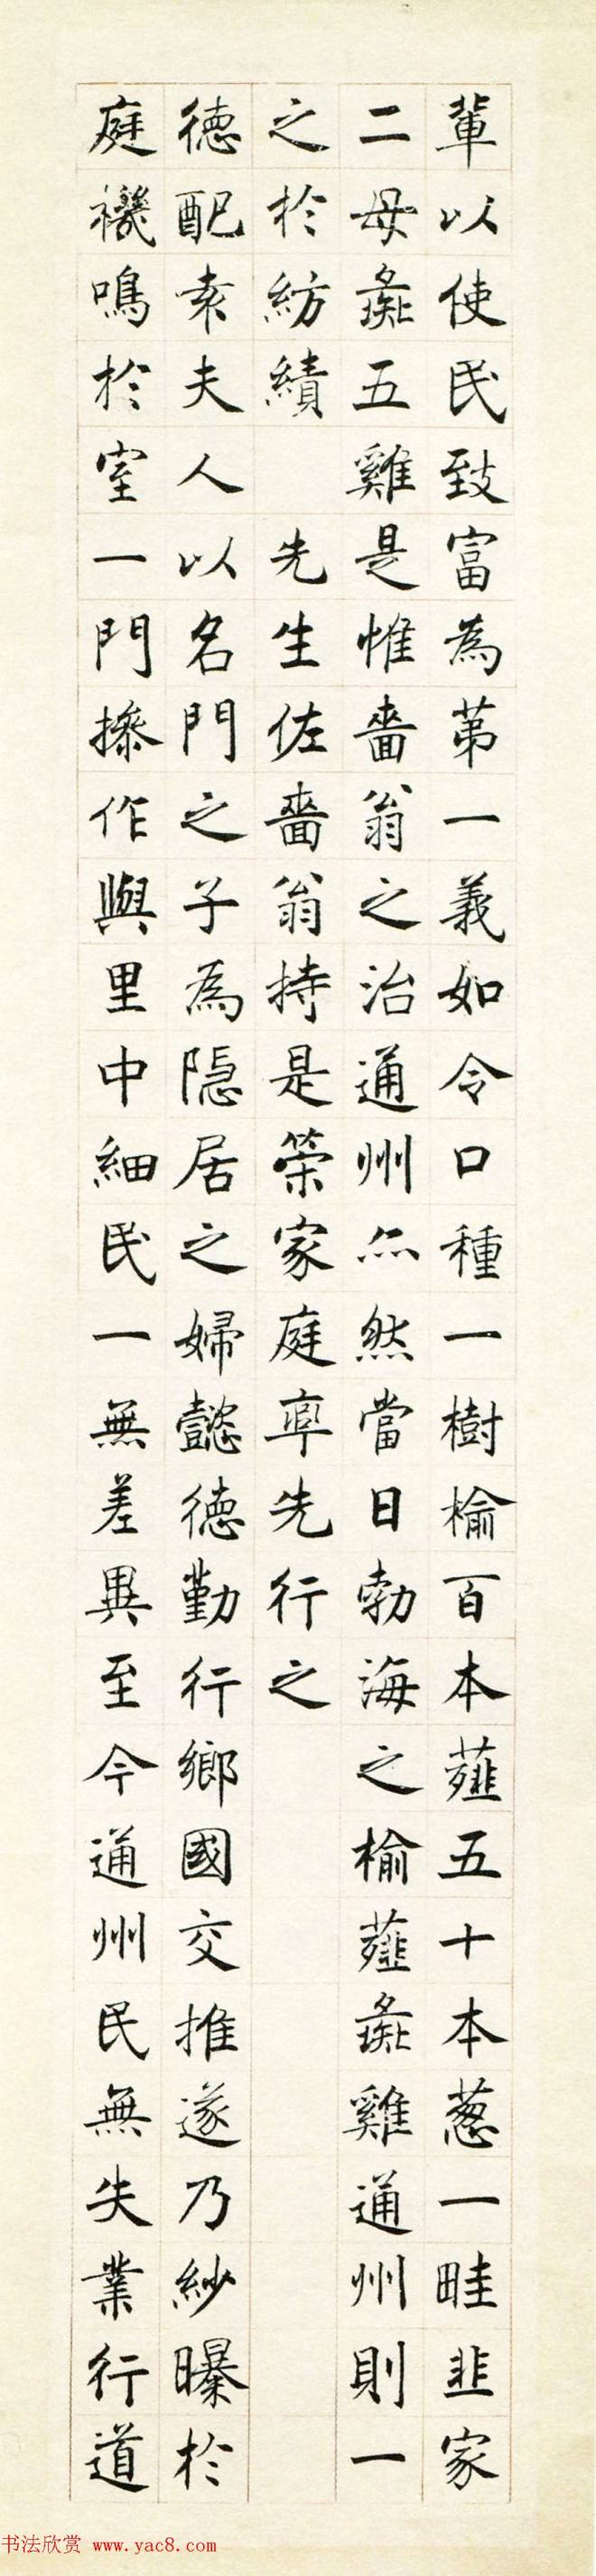 軰以使民致富為第一義如令口種一樹榆百本薤五十本葱一畦韭家
二母彘五雞是惟嗇翁之治通州亦然當日勃海之榆薤彘雞通州則一
之於紡績　先生佐嗇翁持是榮家庭率先行之
德配袁夫人以名門之子為隱居之婦懿德勤行鄉國交推遂乃紗曝於
庭機鳴於室一門操作與里中細民一無差異至今通州民無失業行道
书法欣赏 www.yac8.com